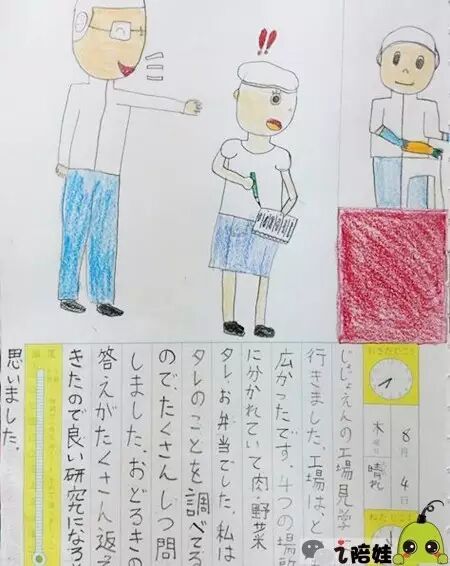 !!
おきたじこく
8月4日
木曜日 晴れ
ねたじこく
じじょえんの工場見学
行きました。工場は、と
広かったです。4つの場所
に分かれていて肉・野菜
タレ、お弁当でした。私は
タレのことを調べてる
ので、たくさんしつ問
しました。おどろきの
答えがたくさん返え
きたので良い研究にな
思いました。
陪娃